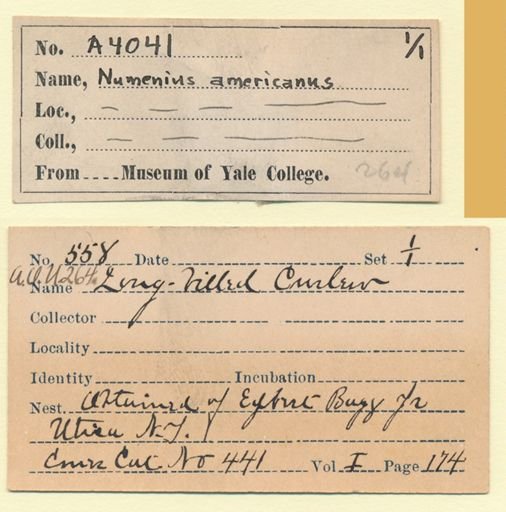 No. A4041 1/1
Name, Numenius americanus
Loc.,
Coll.,
From .... Museum of Yale College. 264
No. 558 Date Set 1/1
A.O.U 264.
Name Long-billed Curlew
Collector
Locality
Identity Incubation
Nest. Obtained of Egbert Bagg Jr
Utica N.Y.
Cat No 441 Vol I Page 174